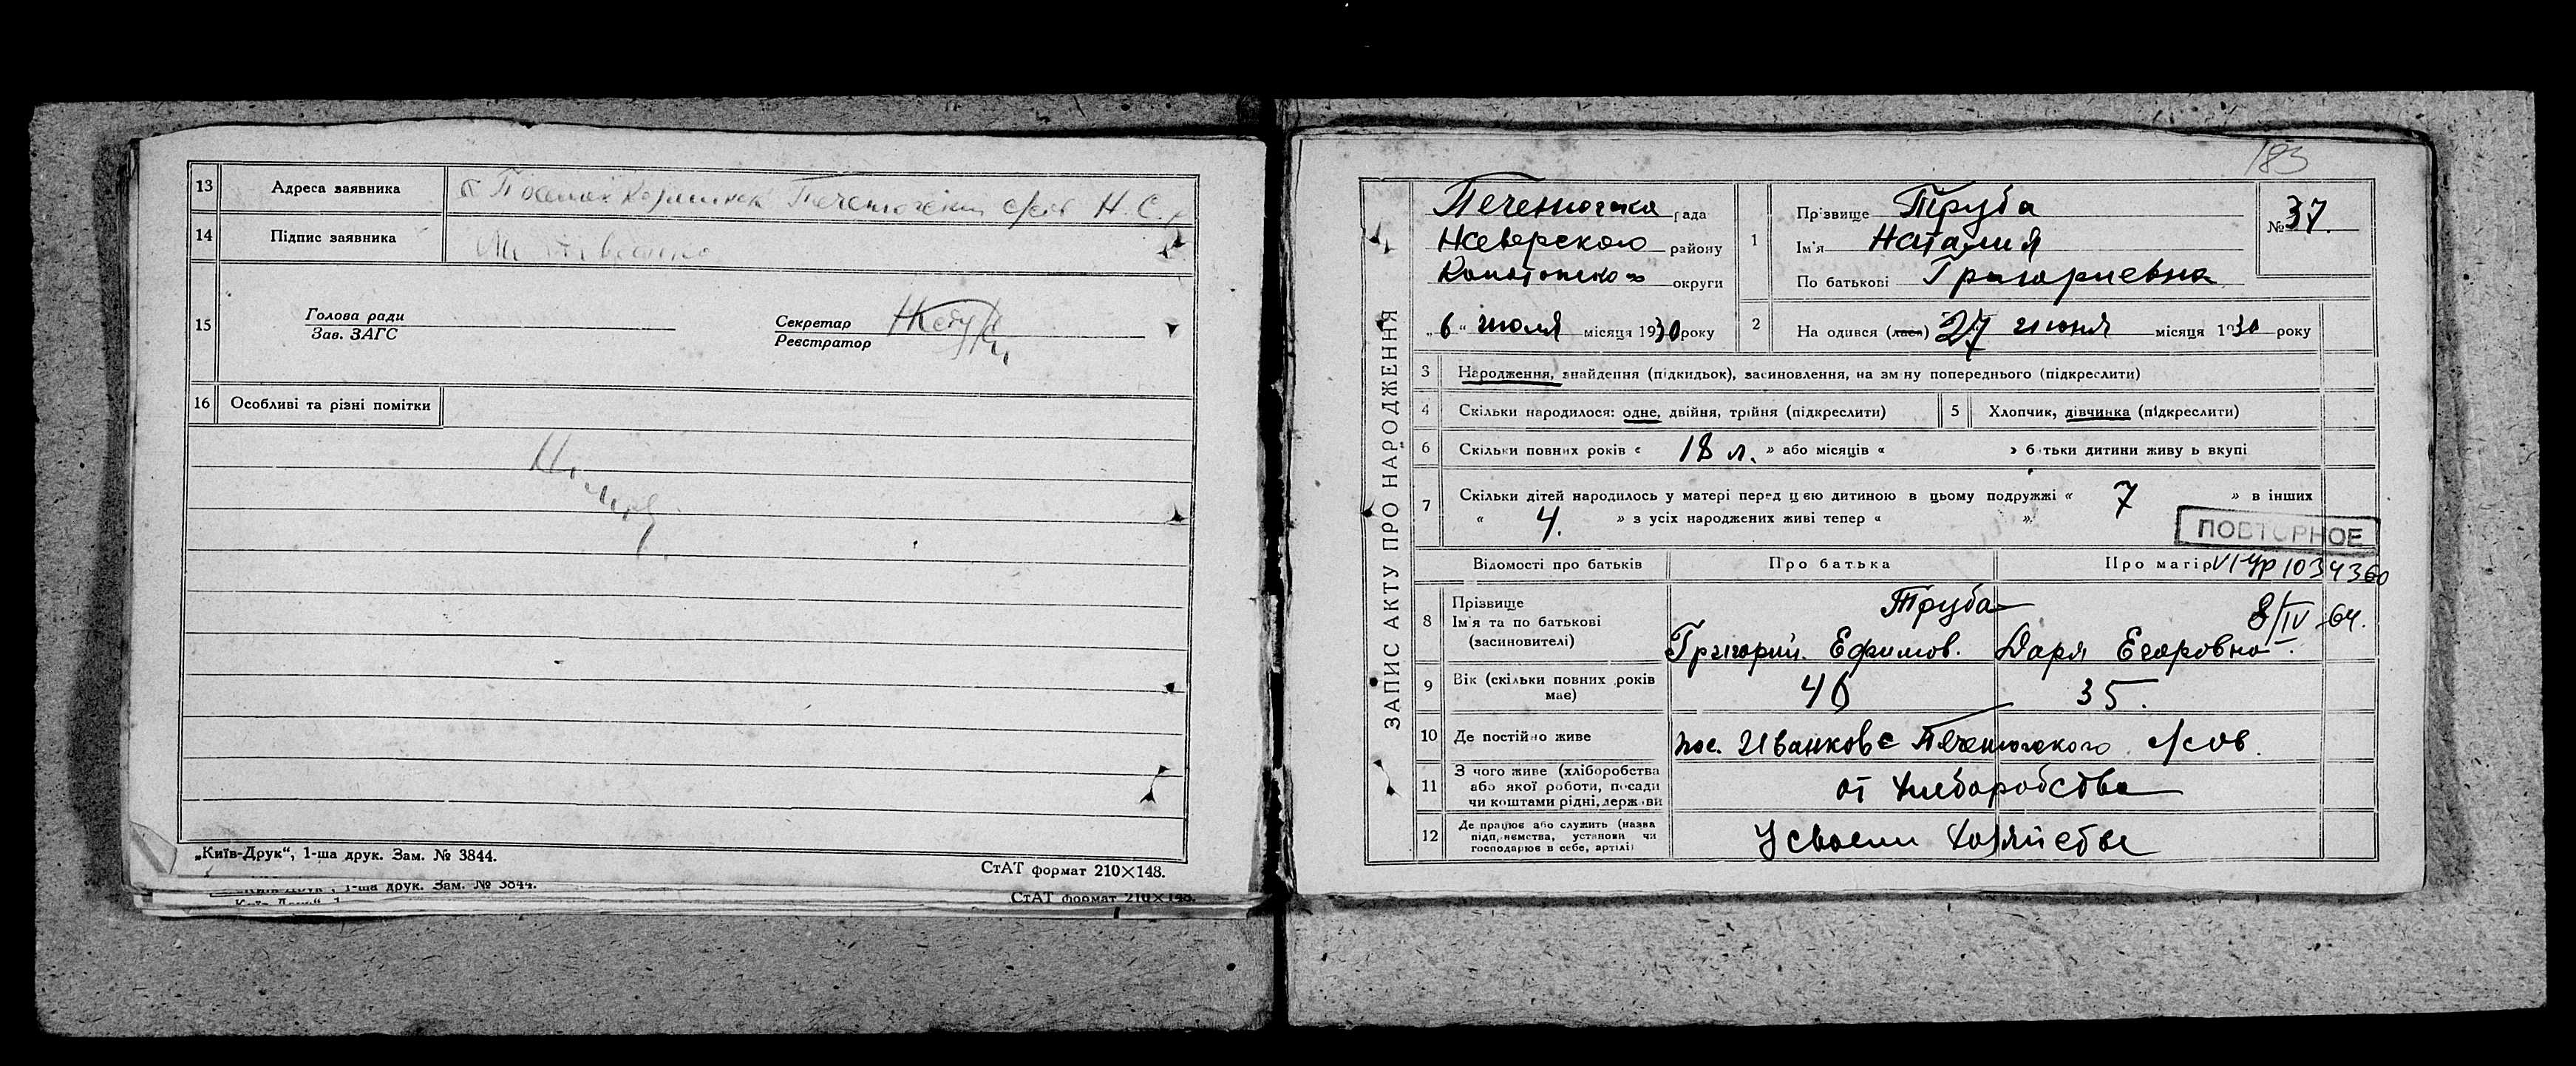 13 Адреса заявника
Н. С.
14 Підпис заявника
15 Голова ради
Зав. ЗАГС
Секретар
Реєстратор
16 Особливі та різні помітки
„Київ-Друк“, 1-ша друк. Зам. № 3844.
СтАТ формат 210×148.
1-ша друк. Зам. № 3844.
СтАТ формат 210×148.
183
ЗАПИС АКТУ ПРО НАРОДЖЕННЯ
Печенюгская рада
района району
Конотопского округи
„6“ июля місяця 1930 року
1 Прізвище Труба
Ім'я Наталия
По батькові Григориевна
№ 37.
2 На одився (лася) 27 июня місяця 1930 року
3 Народження, знайдення (підкидьок), засиновлення, на зміну попереднього (підкреслити)
4 Скільки народилося: одне, двійня, трійня (підкреслити)
5 Хлопчик, дівчинка (підкреслити)
6 Скільки повних років « 18 л. » або місяців « » батьки дитини живуть вкупі
7 Скільки дітей народилось у матері перед цією дитиною в цьому подружжі « 7 » в інших
« 4. » з усіх народжених живі тепер « »
ПОВТОРНОЕ
Відомості про батьків
Про батька
Про матір
VI-УР 1034360
8/IV-64.
8 Прізвище
Ім'я та по батькові
(засиновителі)
Труба
Григорий Ефимов. Даря Егоровна.
9 Вік (скільки повних років
має)
46 35.
10 Де постійно живе
пос. Иванкове Печенюгского с/сов.
11 З чого живе (хліборобства
або якої роботи, посади
чи коштами рідні, держави
от хлеборобства
12 Де працює або служить (назва
підприємства, установи чи
господарює в себе, артілі)
У своем хозяйстве